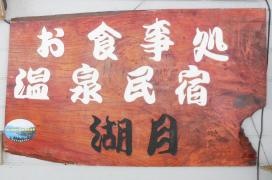 お食事処
温泉民宿
湖月